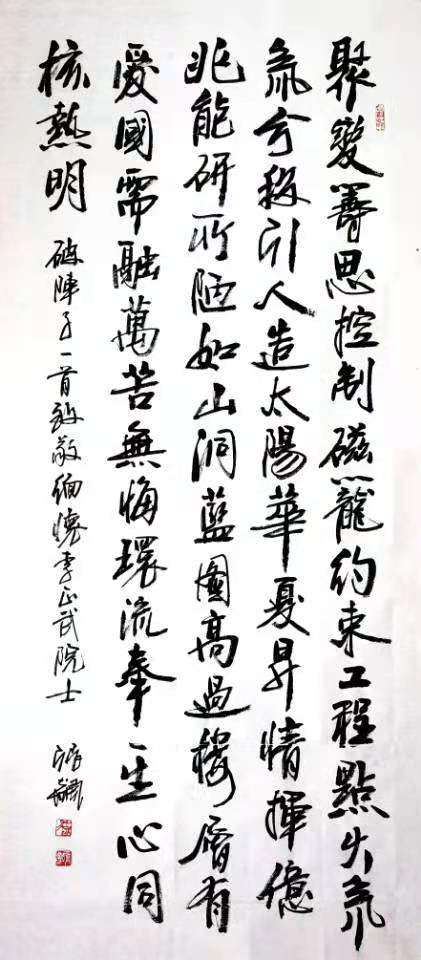 聚變籌思控制磁龍約束工程點火氘
氚兮引人造太陽華夏昇情揮億
兆能研所陋如山洞藍圖高過樓層有
愛國需融萬苦無悔環流奉一生心同
核熱明
破陣子一首致敬緬懷李正武院士